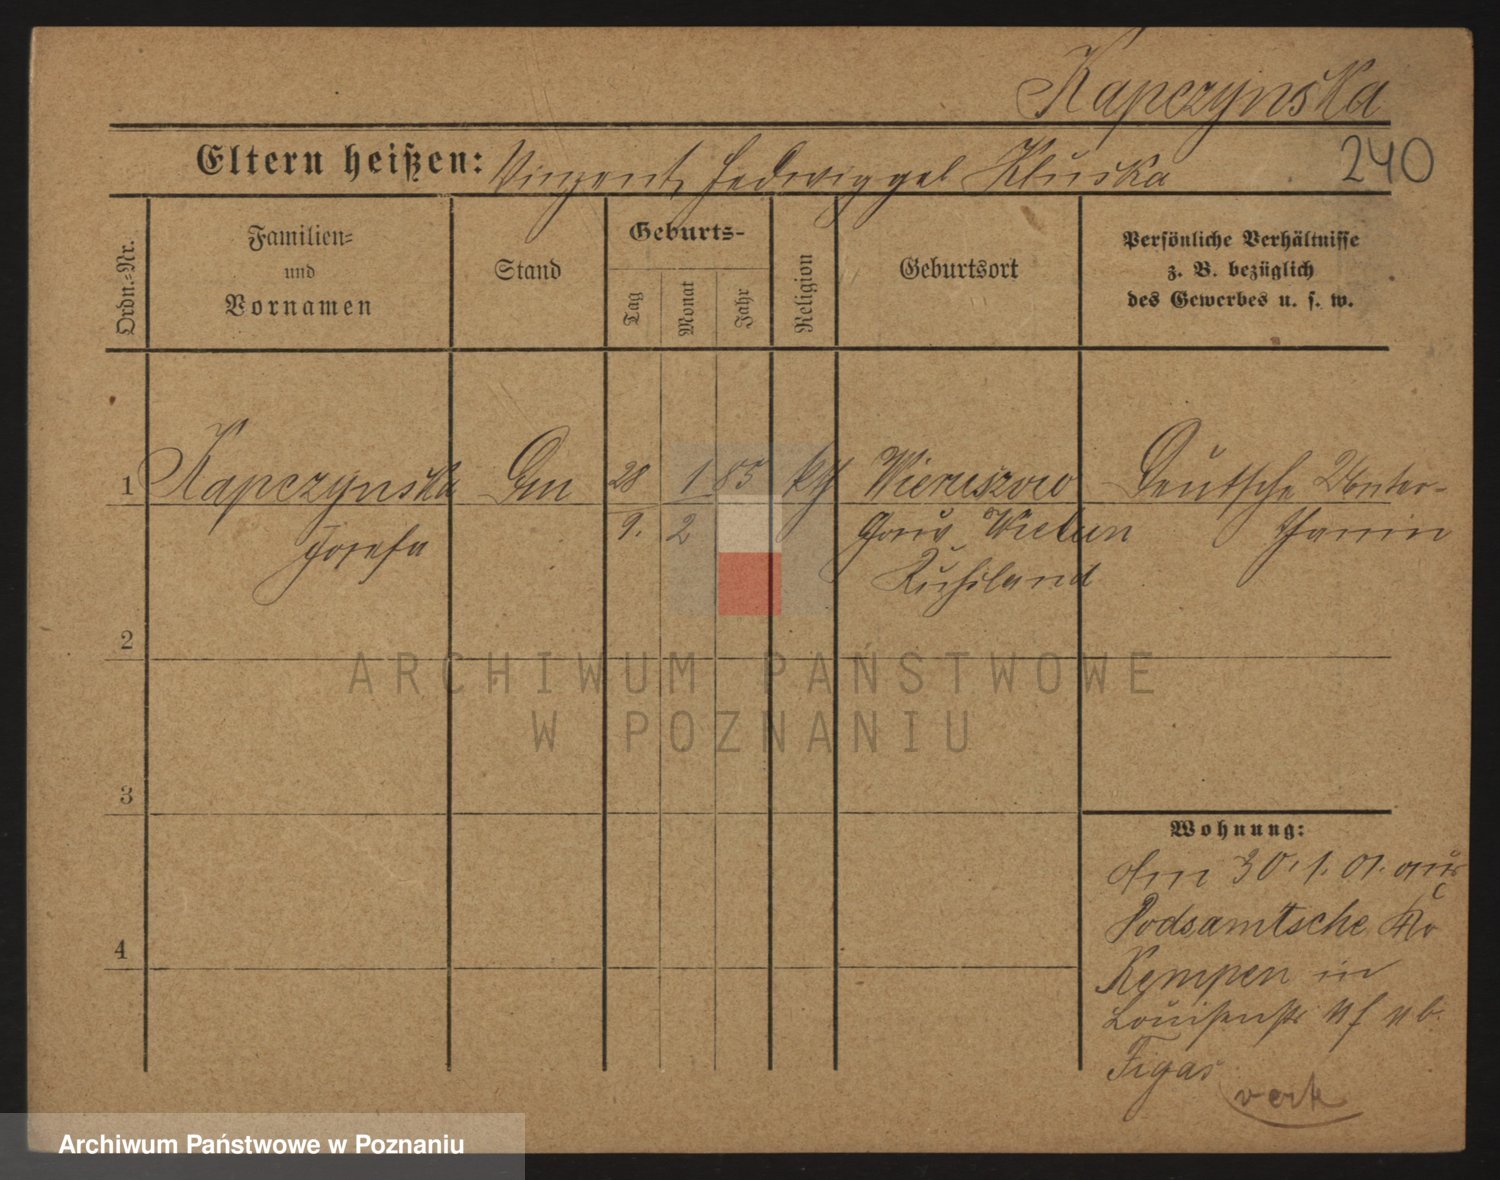 Kapczynska
240
Eltern heißen: Vinzent, Hedwig gel Kluska
Ordn.-Nr.
Familien-
und
Vornamen
Stand
Geburts-
Tag
Monat
Jahr
Religion
Geburtsort
Persönliche Verhältnisse
z. B. bezüglich
des Gewerbes u. s. w.
1 Kapczynska 28 1 85 kth Wieruszow Deutsche Unter-
Josefa 9. 2 Gouv Wielun thanin
Rußland
2
3
4
Wohnung:
Am 30.1.01. aus
Podsamtsche Kr
Kempen in
Louisenstr
Figas
verk
ARCHIWUM PAŃSTWOWE
W POZNANIU
Archiwum Państwowe w Poznaniu